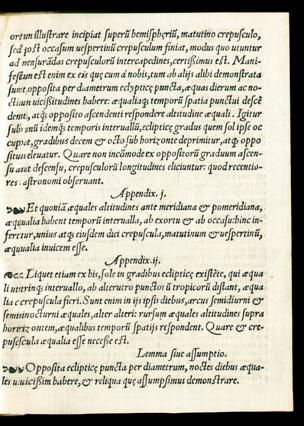 ortum illustrare incipiat superũ hemispheriũ, matutino crepusculo,
sed post occasum uespertinũ crepusculum finiat, modus quo utuntur
ad mensurãdas crepusculorũ intercapedines, certissimus est. Mani-
festum est enim ex eis quę cum à nobis, tum ab alijs alibi demonstrata
sunt, opposita per diametrum eclypticę puncta, æquas dierum ac no-
ctium uicissitudines habere: æqualiaq; temporũ spatia punctui
demt, atq; opposito ascendenti respondere altitudine æquali. Igitur
sub ũnũ idemq; temporis interuallũ, eclipticę gradus quem sol ipse oc
cupat, gradibus decem & octo sub horizonte deprimitur, atq; oppo
situs eleuatur. Quare non incõmode ex oppositorũ graduum ascen-
su aut descensu, crepusculorũ longitudines eliciuntur: quod recentio-
res astronomi obseruant.
Appendix. j.
Et quoniã æquales altitudines ante meridiana & pomeridiana,
æqualia habent temporũ interualla, ab exortu & ab occasu: hinc in-
fertur, unius atq; eiusdem diei crepuscula, matutinum & uespertinũ,
æqualia inuicem esse.
Appendix. ij.
Liquet etiam ex his, sole in gradibus eclipticę existẽte, qui æqua
li utrinq; interuallo, ab alterutro punctorũ tropicorũ distant, æqua
lia crepuscula fieri. Sunt enim in ijs ipsis diebus, arcus semidiurni &
seminocturni æquales, alter alteri: rursum æquales altitudines supra
horizontem, æqualibus temporũ spatijs respondent. Quare & cre-
puscula æqualia esse necesse est.
Lemma siue assumptio.
Opposita eclipticę puncta per diametrum, noctes diebus æqua-
les uicissim habere, & reliqua quę assumpsimus demonstrare.